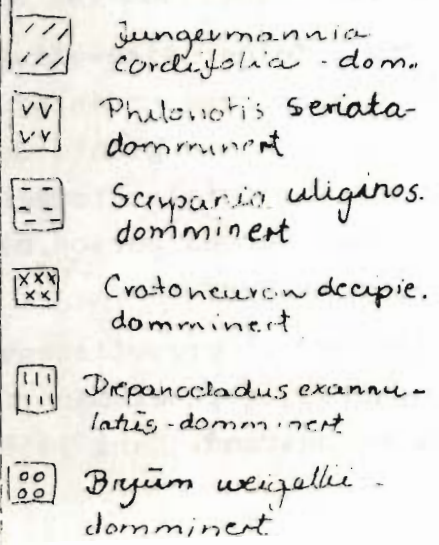 Jungermannia
cordifolia - dom.
Philonotis seriata-
domminert
Scapania uliginos.
domminert
Cratoneuron decipie.
domminert
Drepanocladus exannu-
latus - domminert
Bryum weigelii -
domminert